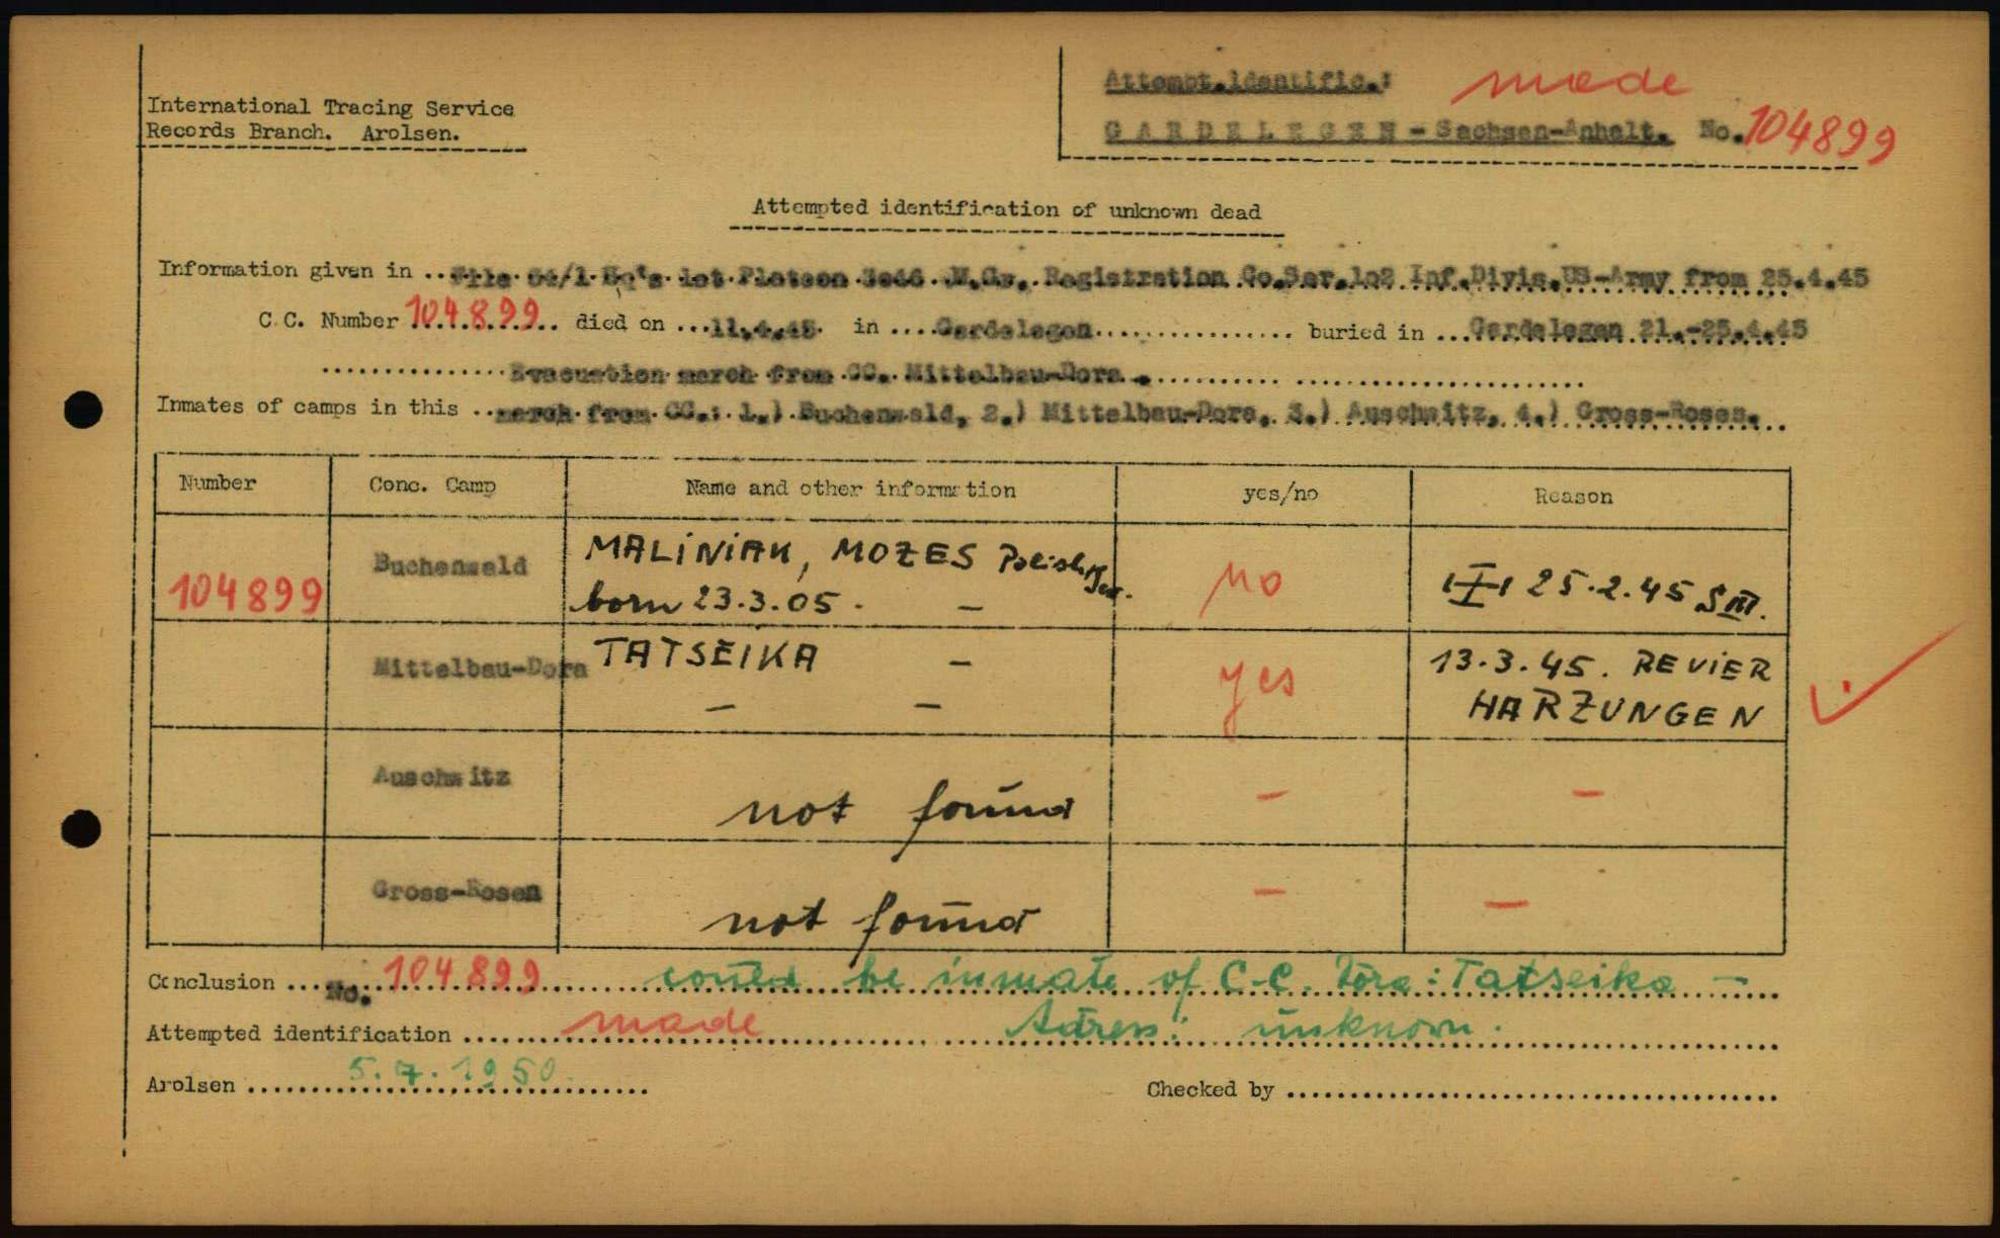 International Tracing Service
Records Branch. Arolsen.
Attempt.identific.: made
GARDELEGEN - Sachsen-Anhalt. No. 104899
Attempted identification of unknown dead
Information given in .. File 54/1 Hq's 1st Platoon Registration Co.Ser.102 Inf.Divis.US-Army from 25.4.45
C.C. Number 104899.. died on ...11.4.45. in ....Gardelegen................ buried in ...Gardelegen 21.-25.4.45
...............Evacuation march from CC. Mittelbau-Dora...........
Inmates of camps in this ..march from CC.: 1.) Buchenwald, 2.) Mittelbau-Dora, 3.) Auschwitz, 4.) Gross-Rosen.
Number Conc. Camp Name and other information yes/no Reason
104899 Buchenwald MALINIAK, MOZES Polish Jew.
born 23.3.05. - no 25.2.45 S III.
Mittelbau-Dora TATSEIKA - yes 13.3.45. REVIER
- - HARZUNGEN
Auschwitz not found - -
Gross-Rosen not found - -
Conclusion ...No. 104899 could be inmate of C.C. Dora: Tatseika -
Attempted identification ......made Adress: unknown.
Arolsen ....5.7.1950
Checked by ........